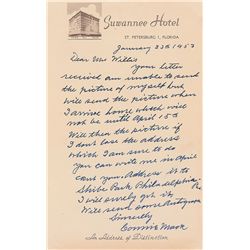 Suwannee Hotel
ST. PETERSBURG 1, FLORIDA
January 23d 1953
Dear Mr Willis
Your letter
received am unable to send
the picture of myself but
will send the picture when
I arrive home which will
not be until April 15th
Will then the picture if
I dont lose the address
which I am sure to do
you can write me in april
Address it to
Shibe Park Philadelphia
Pa
Will send some Autograph
Sincerely
Connie Mack
An Address of Distinction